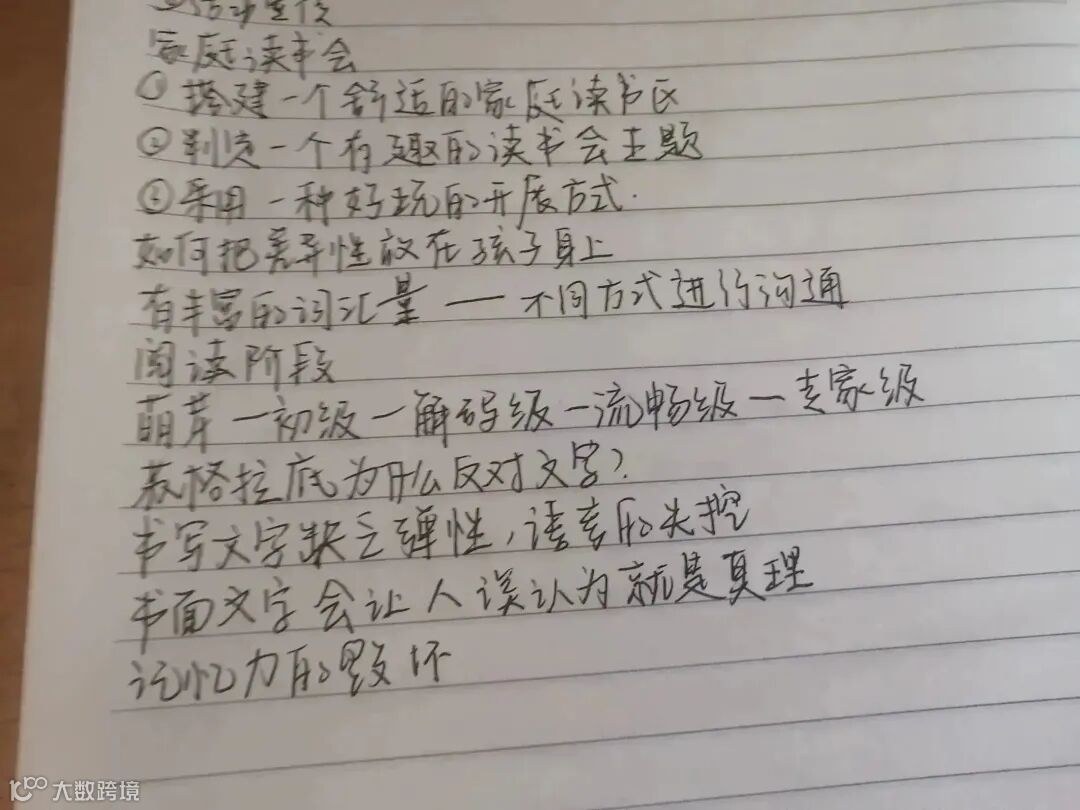 活动宣传
家庭读书会
①搭建一个舒适的家庭读书区
②制定一个有趣的读书会主题
③采用一种好玩的开展方式.
如何把差异性放在孩子身上
有丰富的词汇量——不同方式进行沟通
阅读阶段
萌芽—初级—解码级—流畅级—专家级
苏格拉底为什么反对文字?
书写文字缺乏弹性,语言的失控
书面文字会让人误认为就是真理
记忆力的毁坏
大数跨境